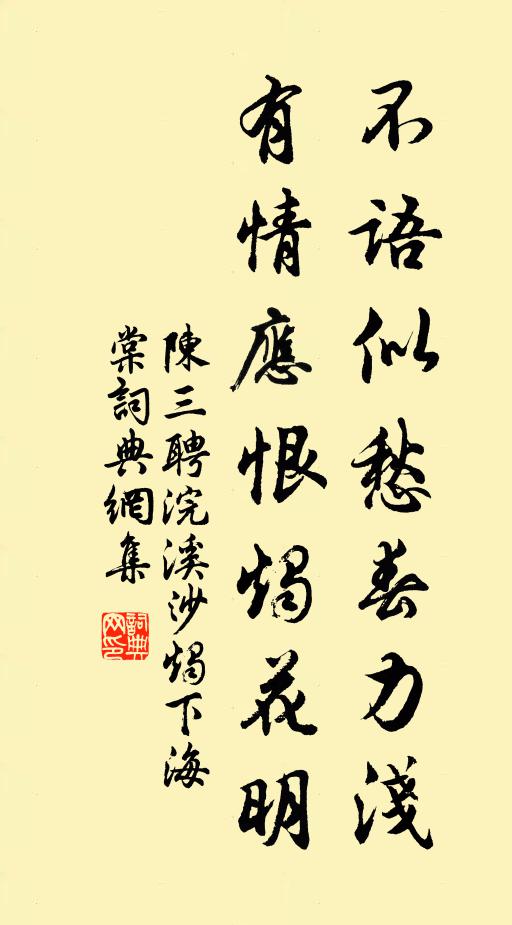 不語似愁春力淺
有情應恨燭花明
陳三聘浣溪沙燭下海
棠詞典網集
詞典網印